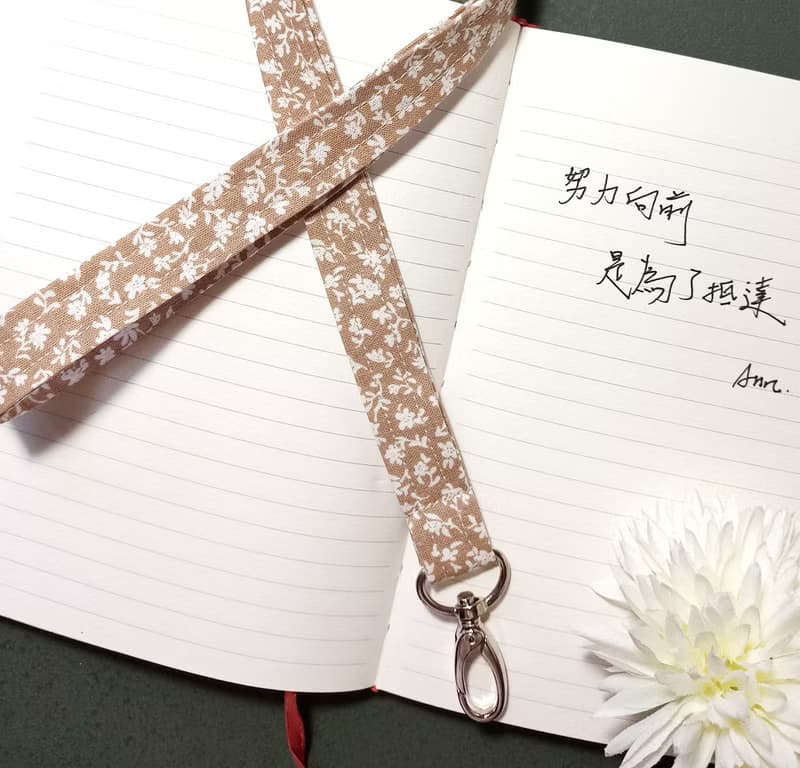 努力向前
是為了抵達
Ann.